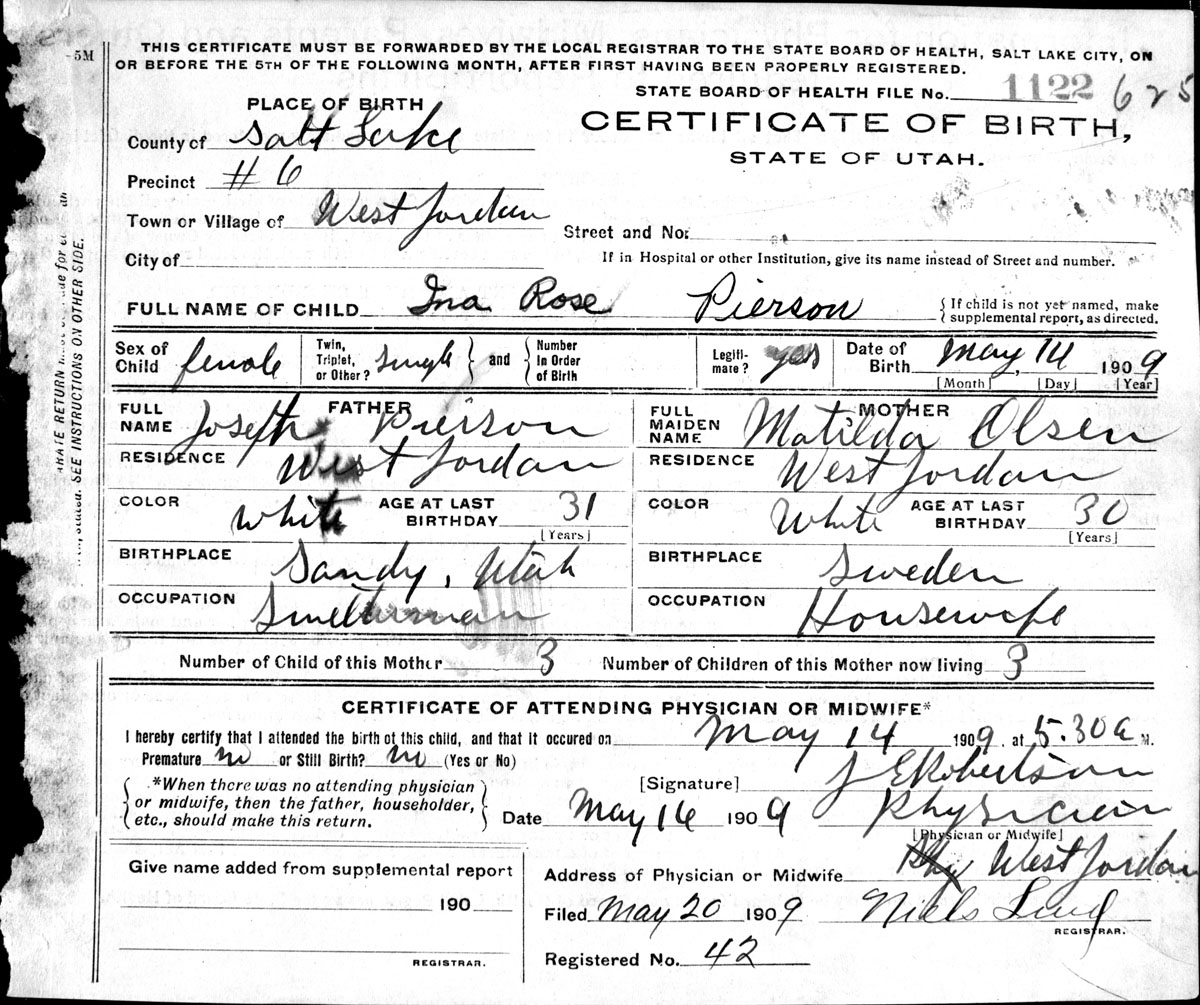 5M
THIS CERTIFICATE MUST BE FORWARDED BY THE LOCAL REGISTRAR TO THE STATE BOARD OF HEALTH, SALT LAKE CITY, ON
OR BEFORE THE 5TH OF THE FOLLOWING MONTH, AFTER FIRST HAVING BEEN PROPERLY REGISTERED.
STATE BOARD OF HEALTH FILE No. 1122 625
PLACE OF BIRTH
CERTIFICATE OF BIRTH,
STATE OF UTAH.
County of Salt Lake
Precinct #6
Town or Village of West Jordan
Street and No.
City of
If in Hospital or other Institution, give its name instead of Street and number.
FULL NAME OF CHILD Ina Rose Pierson
{If child is not yet named, make
supplemental report, as directed.
Sex of Child female
Twin, Triplet, or Other? Single } and { Number in Order of Birth
Legitimate? yes
Date of Birth May, 14 1909
[Month] [Day] [Year]
FATHER
FULL NAME Joseph Pierson
RESIDENCE West Jordan
COLOR White AGE AT LAST BIRTHDAY 31
[Years]
BIRTHPLACE Sandy, Utah
OCCUPATION Smelterman
MOTHER
FULL MAIDEN NAME Matilda Olsen
RESIDENCE West Jordan
COLOR White AGE AT LAST BIRTHDAY 30
[Years]
BIRTHPLACE Sweden
OCCUPATION Housewife
Number of Child of this Mother 3 Number of Children of this Mother now living 3
CERTIFICATE OF ATTENDING PHYSICIAN OR MIDWIFE*
I hereby certify that I attended the birth of this child, and that it occured on May 14 1909. at 5.30 a M.
Premature no or Still Birth? no (Yes or No)
*When there was no attending physician
or midwife, then the father, householder,
etc., should make this return.
[Signature] J E Robertson
Date May 16 1909 Physician
[Physician or Midwife]
Give name added from supplemental report
190
REGISTRAR.
Address of Physician or Midwife West Jordan
Filed May 20 1909 Niels Lind
REGISTRAR.
Registered No. 42
SEE INSTRUCTIONS ON OTHER SIDE.